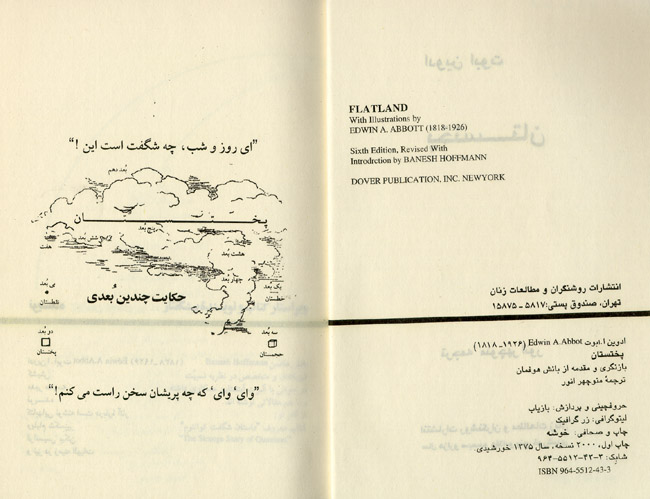 ”ای روز و شب، چه شگفت است این !“
بُعد دهم
پخستان
پنج بُعد
هفت
هشت بُعد
چهار بُعد
حکایت چندین بُعدی
بی بُعد
نقطستان
یک بُعد
خطستان
دو بُعد
پخستان
سه بُعد
حجمستان
”وای، وای، که چه پریشان سخن راست می کنم!“
FLATLAND
With Illustrations by
EDWIN A. ABBOTT (1818-1926)
Sixth Edition, Revised With
Introdrction by BANESH HOFFMANN
DOVER PUBLICATION, INC. NEWYORK
انتشارات روشنگران و مطالعات زنان
تهران، صندوق پستی: ۵۸۱۷ ـ ۱۵۸۷۵
ادوین ا. ابوت Edwin A. Abbot (۱۹۲۶ـ۱۸۱۸)
پختستان
بازنگری و مقدمه از بانش هوفمان
ترجمهٔ منوچهر انور
حروفچینی و پردازش: بازیاب
لیتوگرافی: زر گرافیک
چاپ و صحافی: خوشه
چاپ اول، ۲۰۰۰ نسخه، سال ۱۳۷۵ خورشیدی
شابک: ۳-۴۳-۵۵۱۲-۹۶۴
ISBN 964-5512-43-3